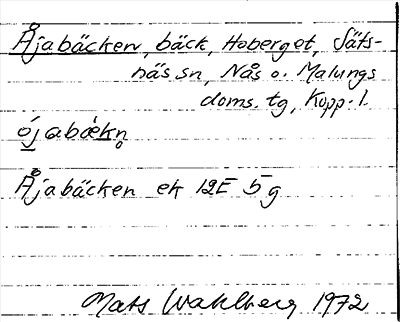 Åjabäcken, bäck, Hoberget, Säfs-
näs sn, Nås o. Malungs
doms. tg, Kopp. l.
ójabǽkn̥
Åjabäcken ek 12E 5g
Mats Wahlberg 1972